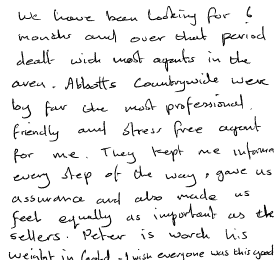 We have been looking for 6
months and over that period
dealt with most agents in the
area. Abbotts Countrywide were
by far the most professional,
friendly and stress free agent
for me. They kept me inform
every step of the way, gave us
assurance and also made us
feel equally as important as the
sellers. Peter is worth his
weight in Gold. I wish everyone was this good